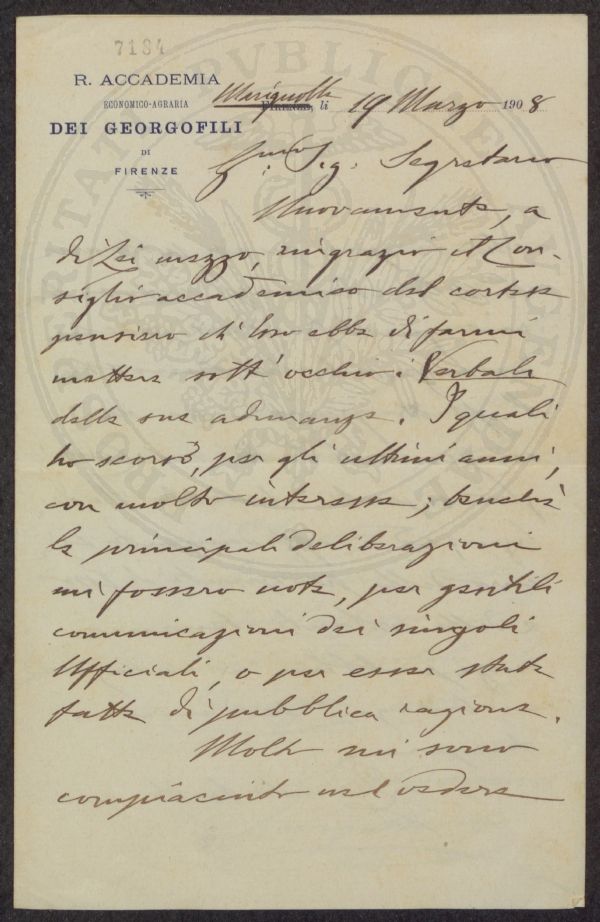 7134
R. ACCADEMIA
ECONOMICO-AGRARIA
DEI GEORGOFILI
DI
FIRENZE
Marignolle
FIRENZE, li 19 Marzo 1908
Sig. Segretario
Nuovamente, a
di Lei mezzo, ringrazio il Con-
siglio accademico del cortese
pensiero ch'Esso ebbe di farmi
mettere sott'occhio i Verbali
delle sue adunanze. I quali
ho scorsò, per gli ultimi anni,
con molto interesse; benchè
le principali deliberazioni
mi fossero note, per gentili
comunicazioni dei singoli
Ufficiali, o per esser state
fatte di pubblica ragione.
Molto mi sono
compiaciuto nel vedere